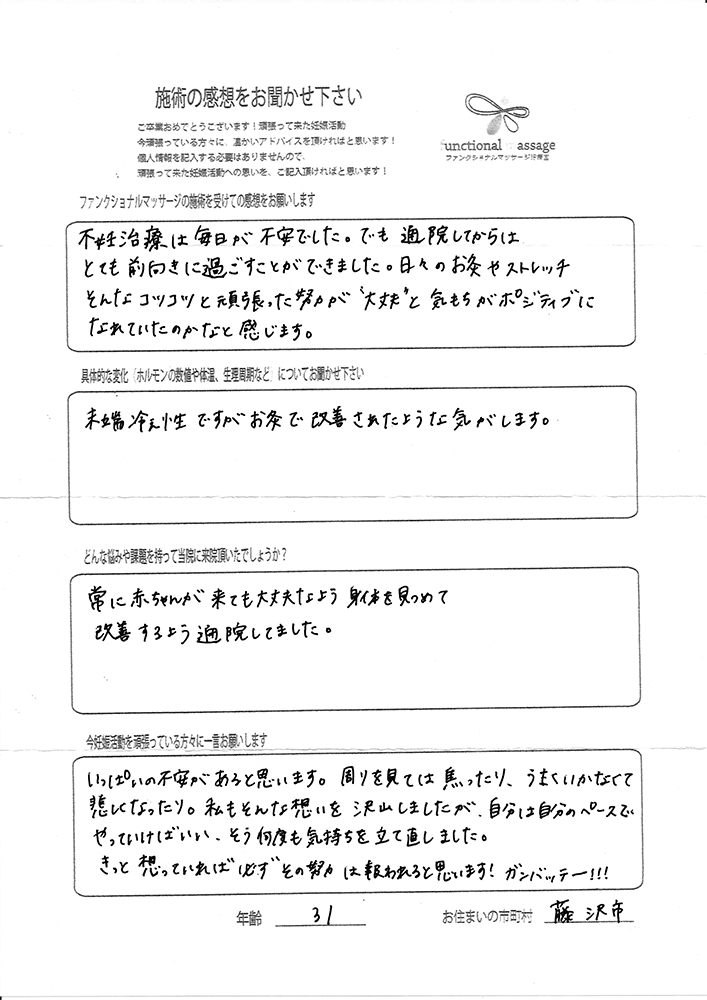 施術の感想をお聞かせ下さい
ご卒業おめでとうございます！頑張って来た妊娠活動
今頑張っている方々に、温かいアドバイスを頂ければと思います！
個人情報を記入する必要はありませんので、
頑張って来た妊娠活動への思いを、ご記入頂ければと思います！
functional massage
ファンクショナルマッサージ治療室
ファンクショナルマッサージの施術を受けての感想をお願いします
不妊治療は毎日が不安でした。でも通院してからは
とても前向きに過ごすことができました。日々のお灸やストレッチ
そんなコツコツと頑張った努力が“大丈夫”と気もちがポジティブに
なれていたのかなと感じます。
具体的な変化（ホルモンの数値や体温、生理周期など）についてお聞かせ下さい
末端冷え性ですがお灸で改善されたような気がします。
どんな悩みや課題を持って当院に来院頂いたでしょうか？
常に赤ちゃんが来ても大丈夫なよう身体を見つめて
改善するよう通院してました。
今妊娠活動を頑張っている方々に一言お願いします
いっぱいの不安があると思います。周りを見ては焦ったり、うまくいかなくて
悲しくなったり。私もそんな想いを沢山しましたが、自分は自分のペースで
やっていけばいい、そう何度も気持ちを立て直しました。
きっと想っていれば必ずその努力は報われると思います！ガンバッテー!!!
年齢 31 お住まいの市町村 藤沢市